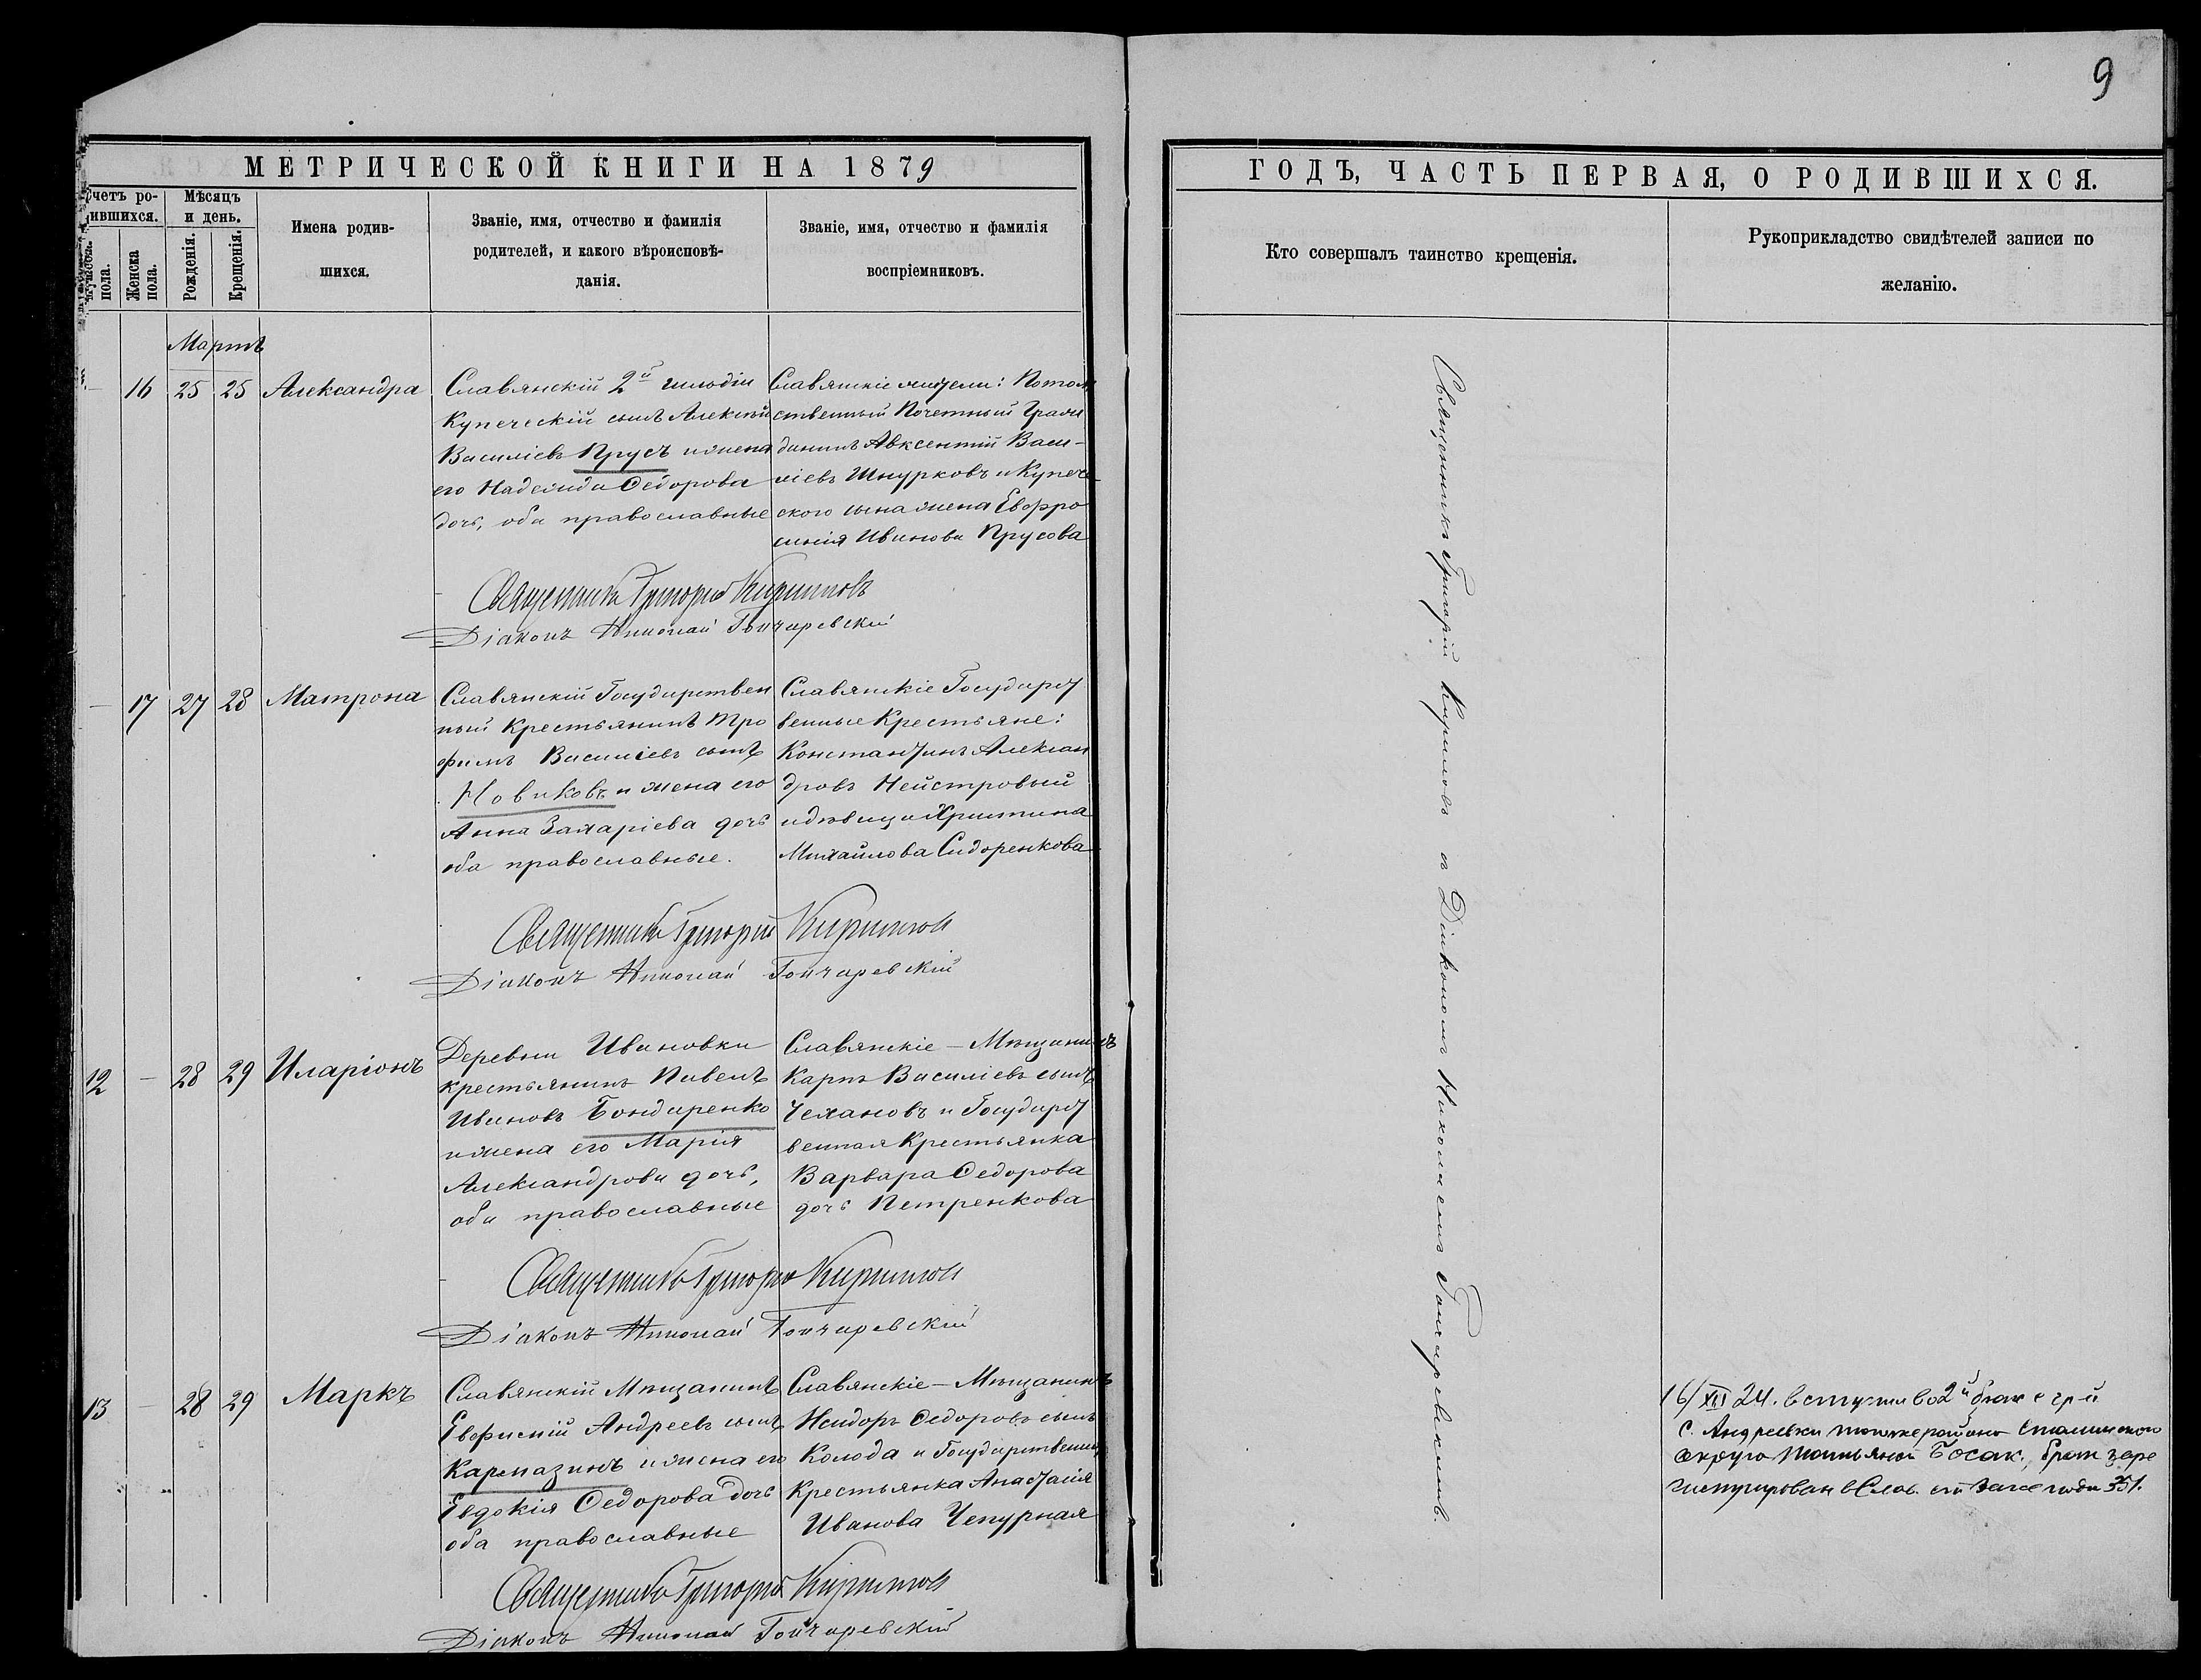 9
МЕТРИЧЕСКОЙ КНИГИ НА 1879
ГОДЪ, ЧАСТЬ ПЕРВАЯ, О РОДИВШИХСЯ.
Счетъ ро-
дившихся.
пола.
Женска
пола.
Мѣсяцъ
и день.
Рожденія.
Крещенія.
Имена родив-
шихся.
Званіе, имя, отчество и фамилія
родителей, и какого вѣроисповѣ-
данія.
Званіе, имя, отчество и фамилія
воспріемниковъ.
Кто совершалъ таинство крещенія.
Рукоприкладство свидѣтелей записи по
желанію.
Мартъ
— 16 25 25 Александра
Славянскій 2й гильдіи
Купеческій сынъ Алексѣй
Василіевъ Прусъ и жена
его Надежда Ѳедорова
дочь, оба православные
Славянскіе жители: Потом
ственный Почетный Граж
данинъ Авксентій Васи-
ліевъ Шнурковъ и Купече
ского сына жена Евфро
синія Иванова Прусова
Священникъ Григорій Кириловъ
Діаконъ Николай Гончаревскій
— 17 27 28 Матрона
Славянскій Государствен
ный Крестьянинъ Тро
фимъ Василіевъ сынъ
Новиковъ и жена его
Анна Захаріева дочь
оба православные.
Славянскіе Государст
венные Крестьяне:
Константинъ Алексан
дровъ Нейстровый
и дѣвица Христина
Михаилова Сидоренкова
Священникъ Григорій Кириловъ
Діаконъ Николай Гончаревскій
12 — 28 29 Иларіонъ
Деревни Ивановки
крестьянинъ Павелъ
Ивановъ Бондаренко
и жена его Марія
Александрова дочь,
оба православные
Славянскіе – Мѣщанинъ
Карпъ Василіевъ сынъ
Чехановъ и Государст
венная Крестьянка
Варвара Ѳедорова
дочь Петренкова
Священникъ Григорій Кириловъ
Діаконъ Николай Гончаревскій
13 — 28 29 Маркъ
Славянскій Мѣщанинъ
Евфимій Андреевъ сынъ
Кармазинъ и жена его
Евдокія Ѳедорова дочь
оба православные
Славянскіе – Мѣщанинъ
Исидоръ Ѳедоровъ сынъ
Колода и Государственная
Крестьянка Анастасія
Иванова Чепурная
Священникъ Григорій Кириловъ
Діаконъ Николай Гончаревскій
Священникъ Григорій Кириловъ съ Діакономъ Николаемъ Гончаревскимъ.
16/XII 24. вступил во 2й брак с гр-й
с. Андреевки того же района Сталинского
округа Татьяной Босак., брак заре
гистрирован в Слав. 351.